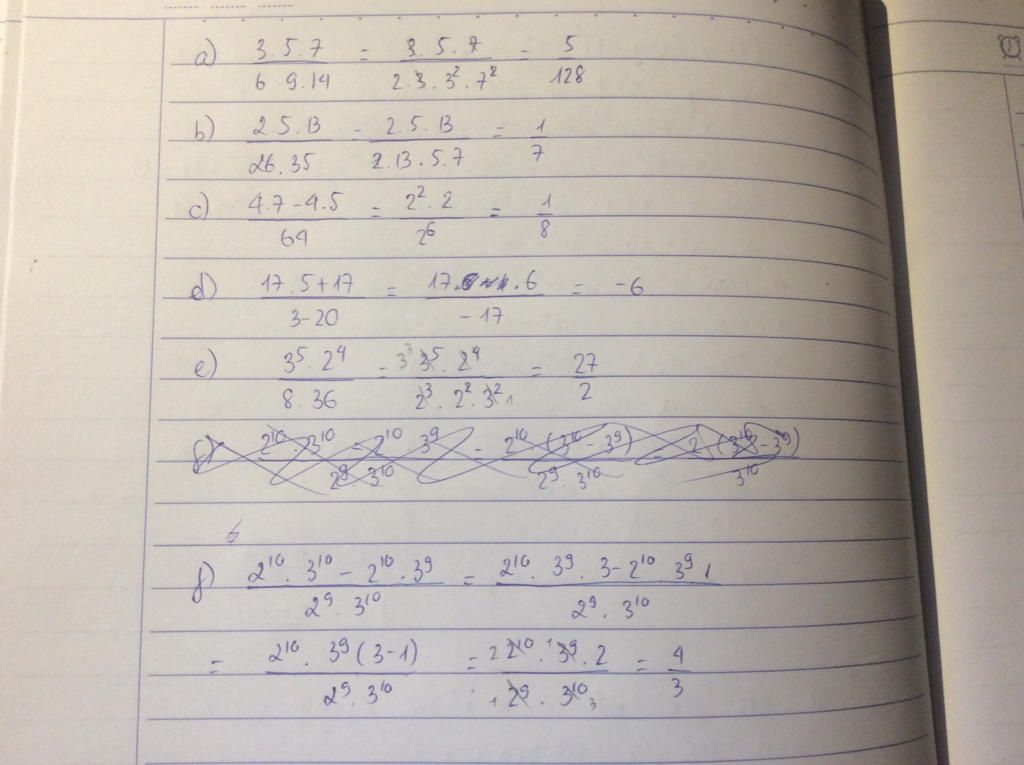 a) 3.5.7 / 6.9.14 = 3.5.7 / 2.3.3².7² = 5 / 128
b) 2.5.13 / 26.35 = 2.5.13 / 2.13.5.7 = 1 / 7
c) 4.7-4.5 / 64 = 2².2 / 2⁶ = 1 / 8
d) 17.5+17 / 3-20 = 17.6 / -17 = -6
e) 3⁵.2⁴ / 8.36 = 3³ 3⁵.2⁴ / 2³.2².3² 1 = 27 / 2
f) 2¹⁰.3¹⁰ - 2¹⁰.3⁹ / 2⁹.3¹⁰ = 2¹⁰.(3¹⁰-3⁹) / 2⁹.3¹⁰ = 2(3¹⁰-3⁹) / 3¹⁰
f) 2¹⁰.3¹⁰-2¹⁰.3⁹ / 2⁹.3¹⁰ = 2¹⁰.3⁹.3-2¹⁰.3⁹.1 / 2⁹.3¹⁰
= 2¹⁰.3⁹(3-1) / 2⁹.3¹⁰ = 2 2¹⁰.1 3⁹.2 / 1 2⁹.3¹⁰ 3 = 4 / 3